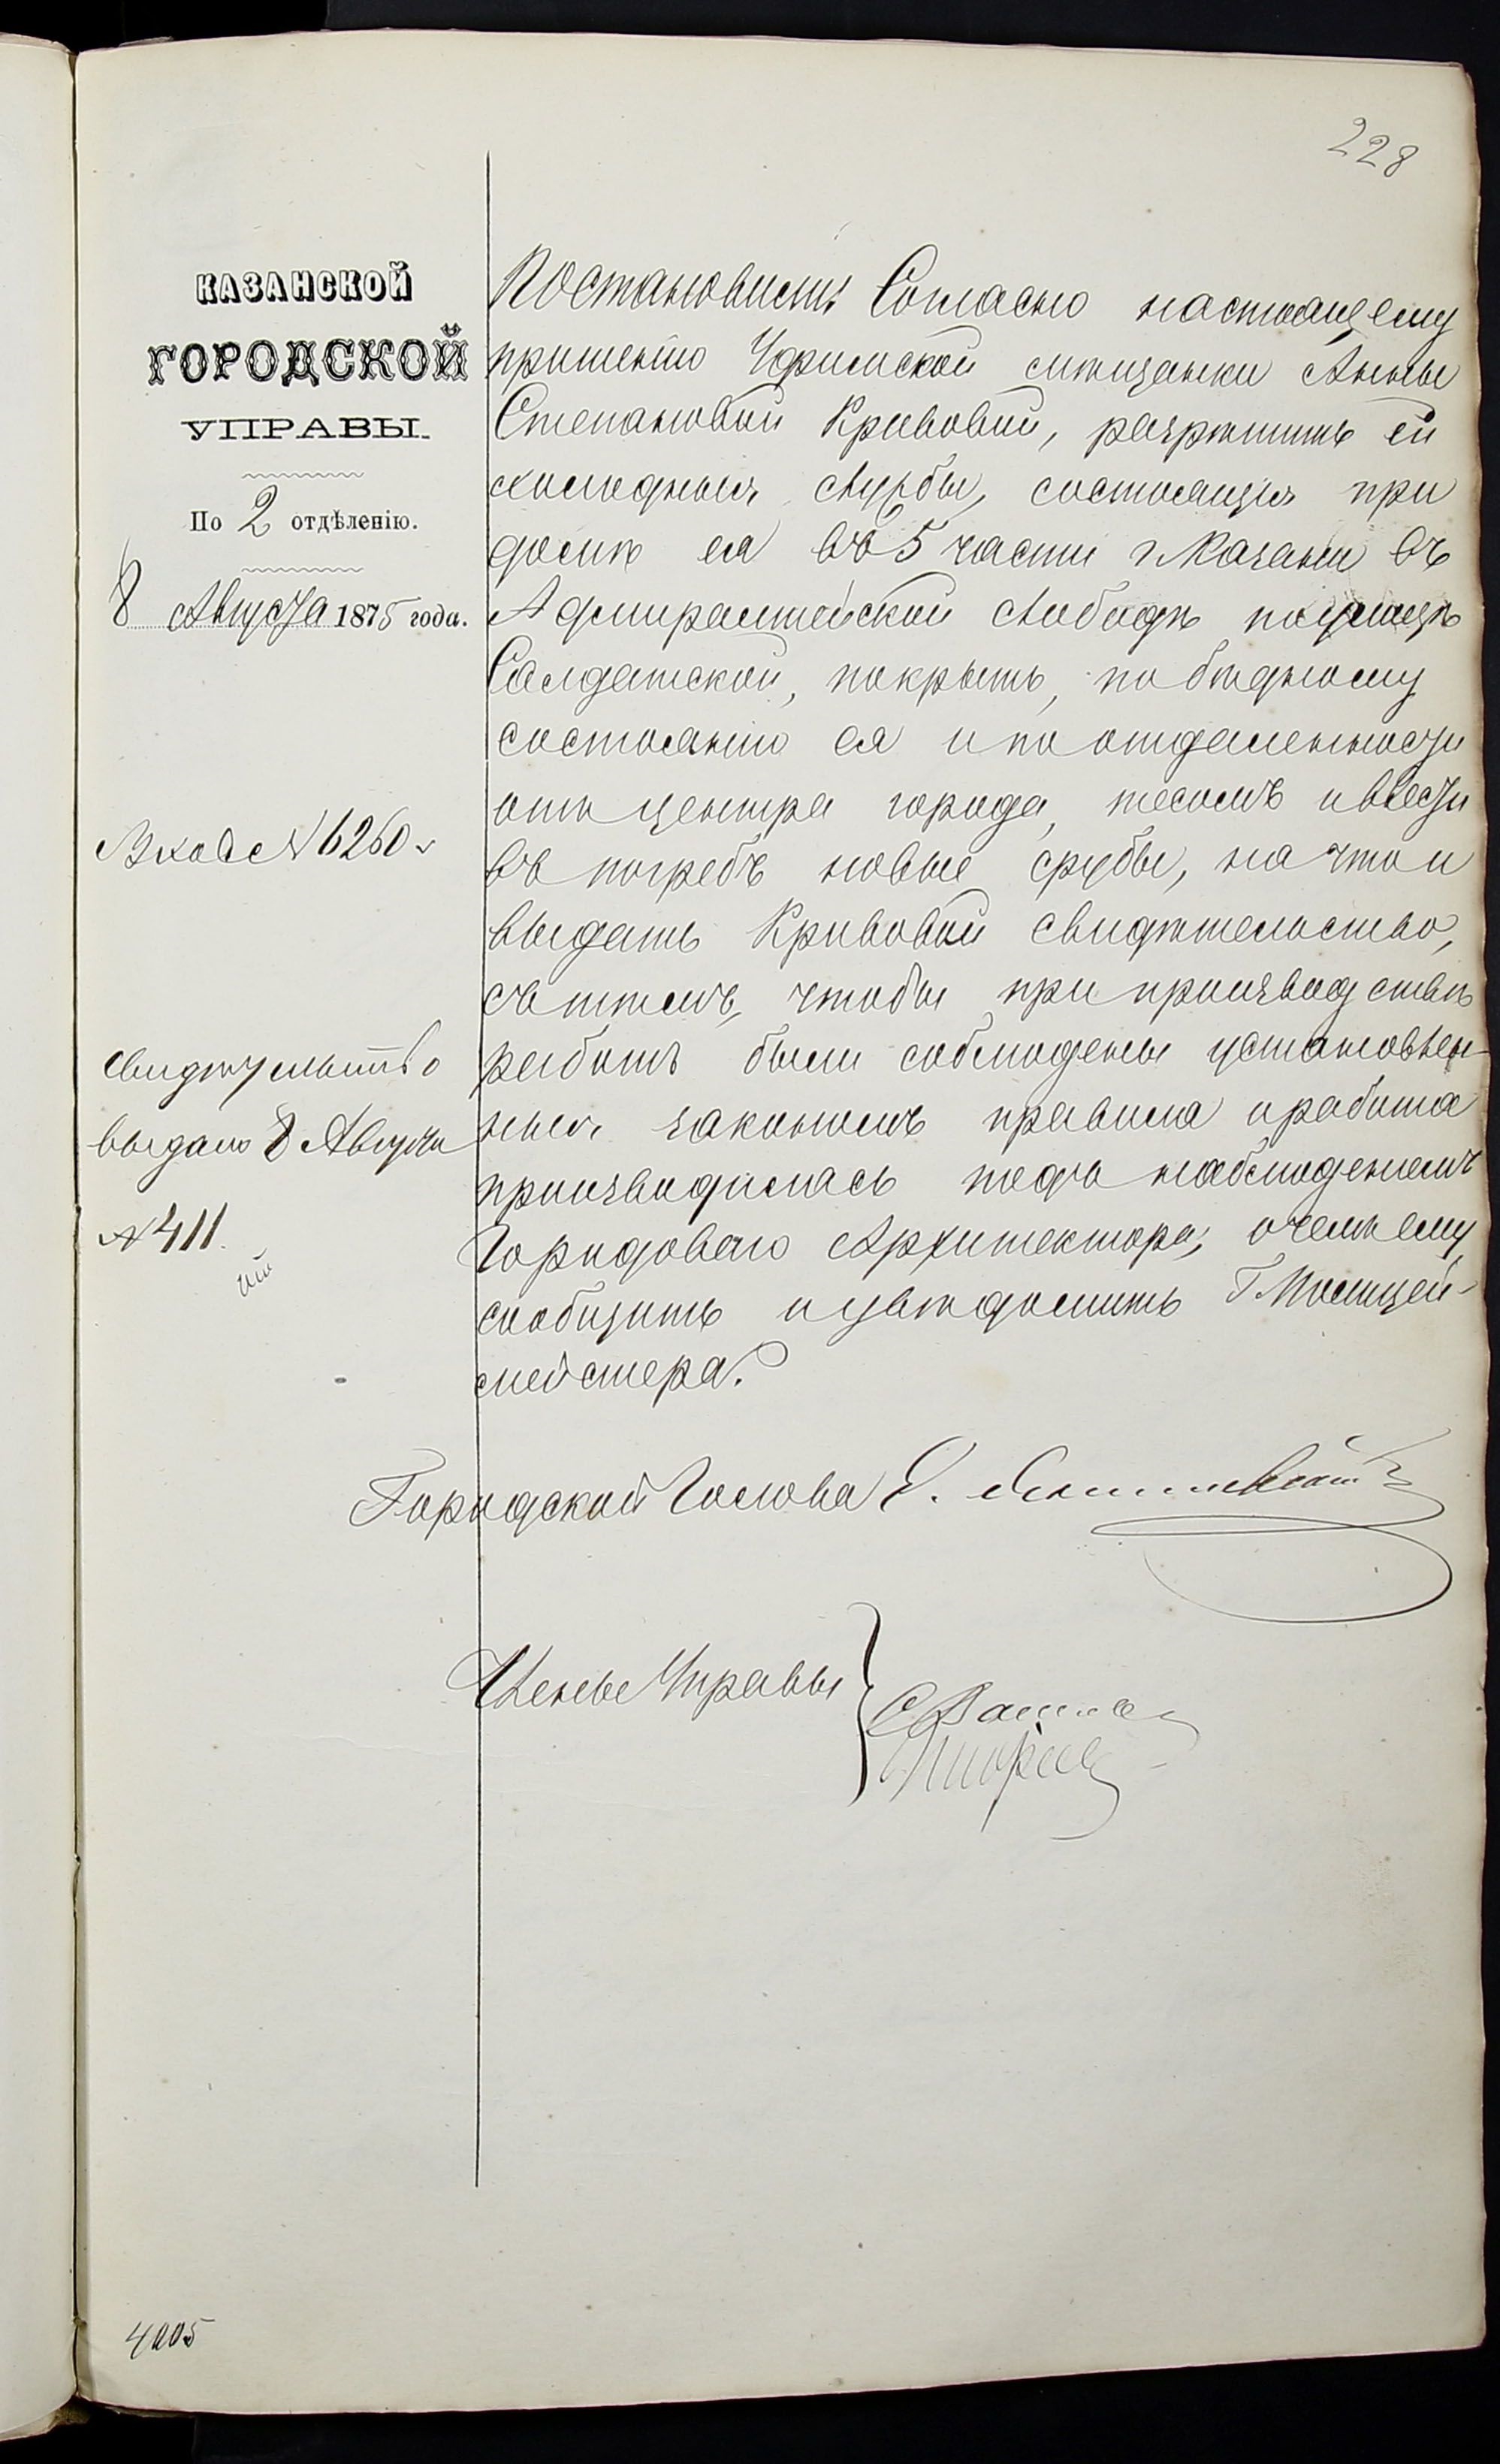 228
КАЗАНСКОЙ
ГОРОДСКОЙ
УПРАВЫ.
По 2 отдѣленію.
8 Августа 1875 года.
Входъ № 6260
Свидѣтельство
выдано 8 Августа
№ 411.
Постановили: Согласно настоящему
прошенію Уфимской мѣщанки Анны
Степановой Кривовой, разрѣшить ей
холодныя службы, состоящія при
домѣ ея въ 5 части г. Казани въ
Адмиралтейской слободѣ по улицѣ
Салдатской, покрыть, по бѣдному
состоянію ея и по отдаленности
отъ центра города, тесомъ и ввести
въ погребъ новые срубы, на что и
выдать Кривовой свидѣтельство,
съ тѣмъ, чтобы при производствѣ
работъ были соблюдены установлен-
ныя закономъ правила и работа
производилась подъ наблюденіемъ
Городоваго Архитектора, о чемъ ему
сообщить и увѣдомить Г. Полицей-
мейстера.
Городской Голова
Члены Управы
4005